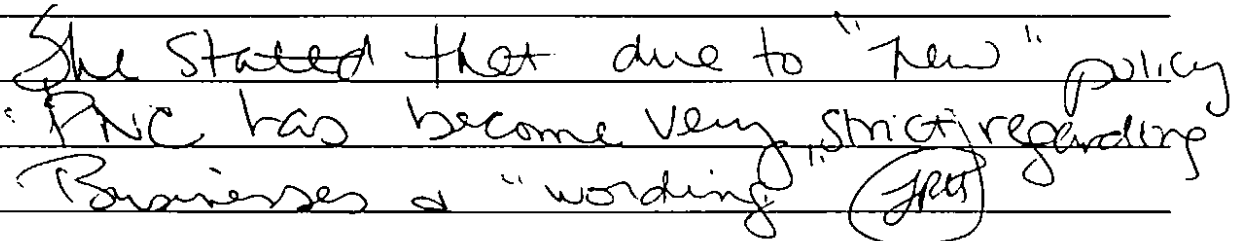 She stated that due to "new" policy
PNC has become very "strict" regarding
Businesses & "wording"